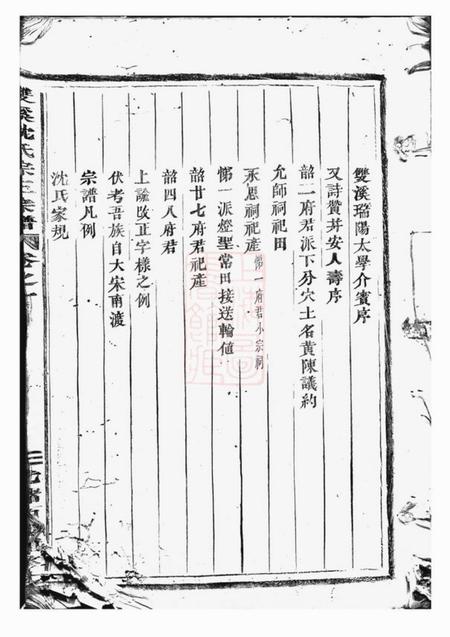 雙溪瑞陽太學介賓序
又詩贊并安人壽序
韶二府君派下分穴土名黃陳議約
允師祠祀田
永思祠祀產 悌一府君小宗祠
悌一派燈聖常田接送輪值
韶廿七府君祀產
韶四八府君
上諭改正字樣之例
伏考吾族自大宋南渡
宗譜凡例
沈氏家規
雙溪沈氏宗